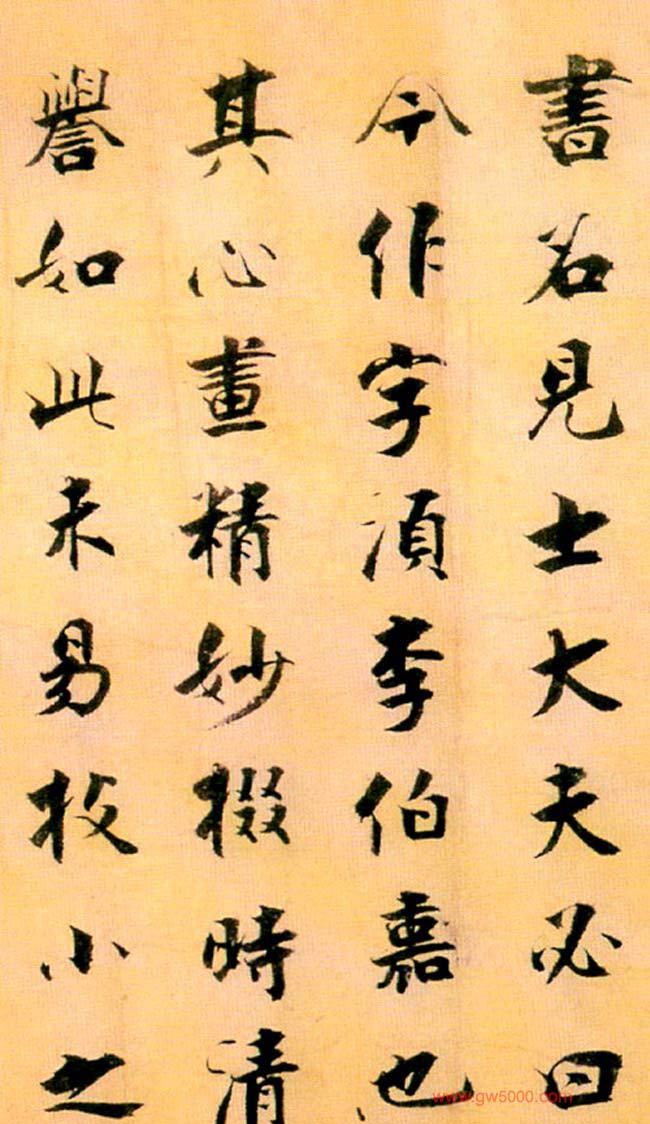 書名見士大夫必曰
今作字須李伯嘉也
其心畫精妙掇時清
譽如此未易技小之
www.gw5000.com